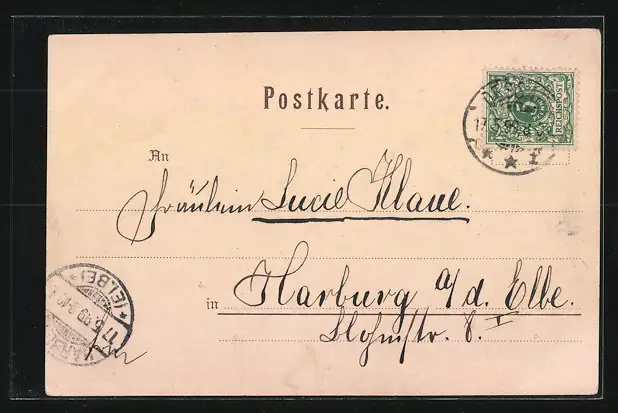 Postkarte.
REICHSPOST
5
An
Fräulein Lucie Klaue.
in Harburg a/d. Elbe.
8. I
(ELBE)
17.5.99